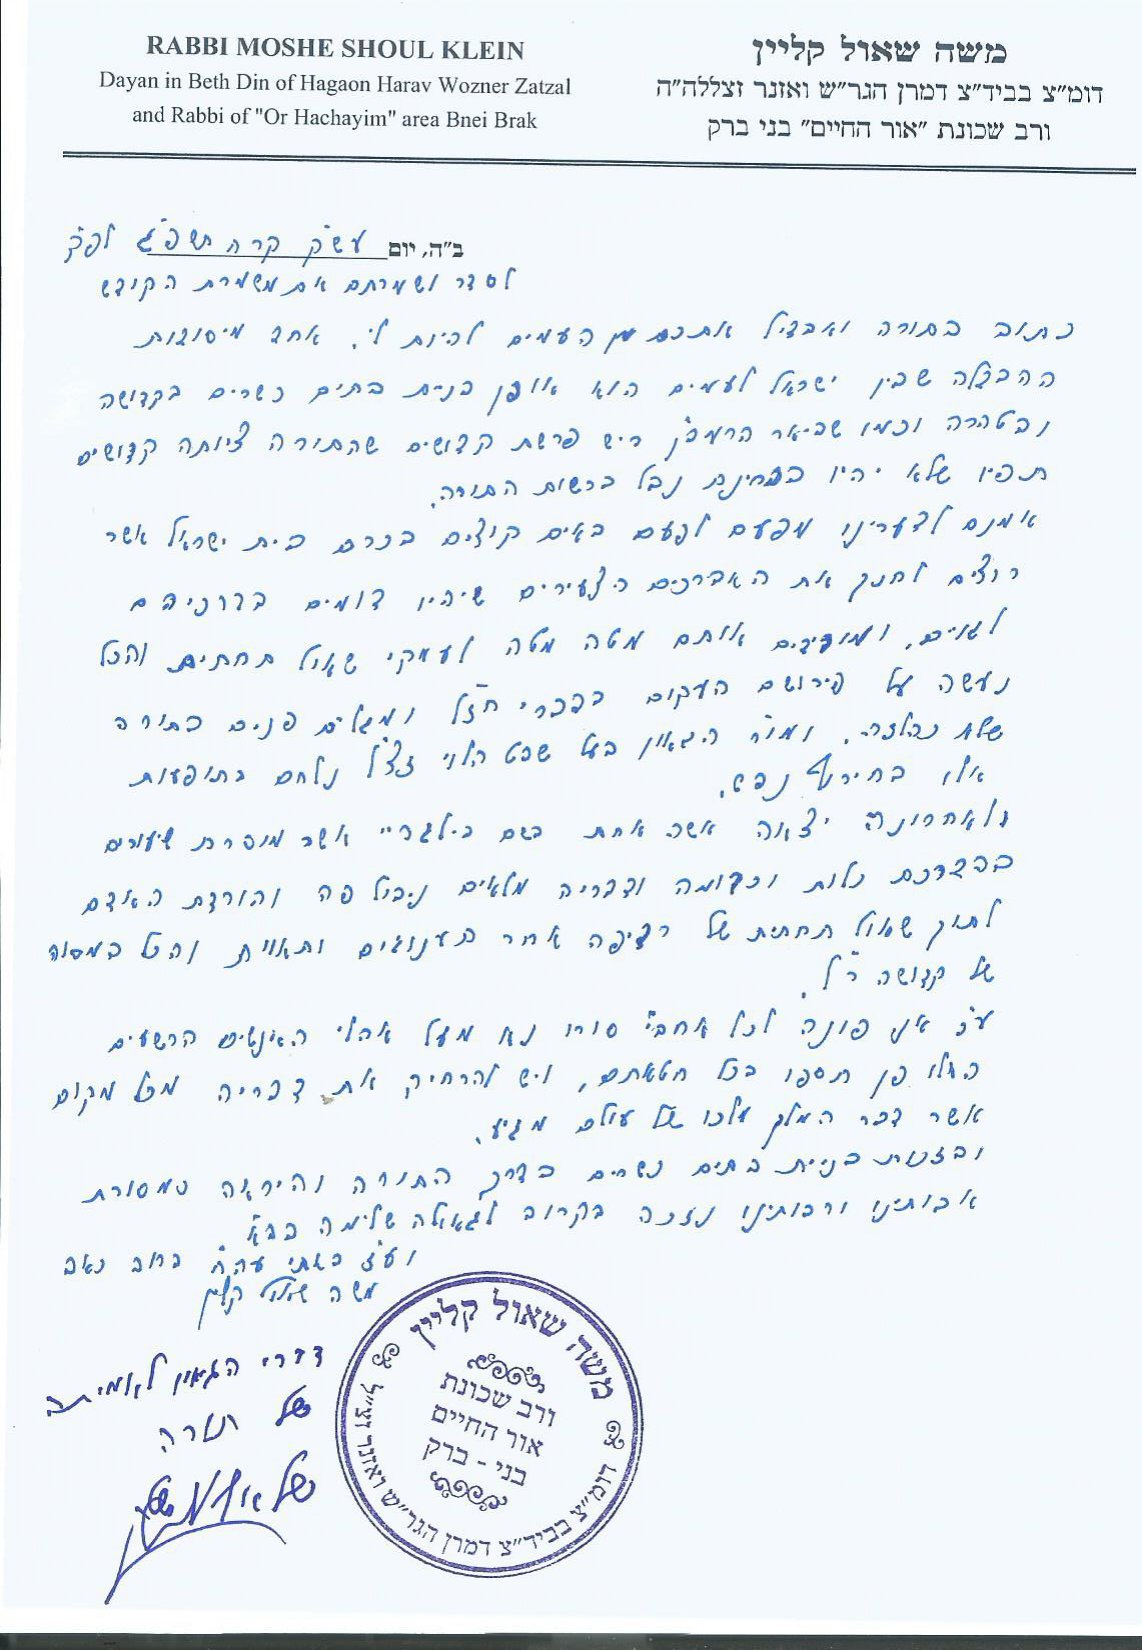 RABBI MOSHE SHOUL KLEIN
Dayan in Beth Din of Hagaon Harav Wozner Zatzal
and Rabbi of "Or Hachayim" area Bnei Brak
משה שאול קליין
דומ"צ בביד"צ דמרן הגר"ש ואזנר זצללה"ה
ורב שכונת "אור החיים" בני ברק
ב"ה, יום עש"ק קרח תשפ"ג לפ"ק
לסדר ושמרתם את משמרת הקודש
כתוב בתורה ואבדיל אתכם מן העמים להיות לי. אחד מיסודות
ההבדלה שבין ישראל לעמים הוא אופן בניית בתים כשרים בקדושה
ובטהרה וכמו שביאר הרמב"ן ריש פרשת קדושים שהתורה ציותה קדושים
תהיו שלא יהיו בבחינת נבל ברשות התורה.
אמנם לצערינו מפעם לפעם באים קוצים בכרם בית ישראל אשר
רוצים לחנך את האברכים הצעירים שיהיו דומים בדרכיהם
לגויים, ומורידים אותם מטה מטה לעמקי שאול תחתית והכל
נעשה על פירושם העקום בדברי חז"ל ומגלים פנים בתורה
שלא כהלכה. ומו"ר הגאון בעל שבט הלוי זצ"ל נלחם בתופעות
אלו בחירוף נפש.
ולאחרונה יצאה אשה אחת בשם בילגריי אשר מוסרת שיעורים
בהדרכת כלות וכדומה ודבריה מלאים ניבול פה והורדת האדם
לתוך שאול תחתית של רדיפה אחר תענוגים ותאוות והכל במסוה
של קדושה ר"ל.
ע"כ אני פונה לכל אחב"י סורו נא מעל אהלי האנשים הרשעים
האלו פן תספו בכל חטאתם, ויש להרחיק את דבריה מכל מקום
אשר דבר המלך מלכו של עולם מגיע.
ובזכות בניית בתים כשרים בדרך התורה והיראה כמסורת
אבותינו ורבותינו נזכה בקרוב לגאולה שלימה בב"א
וע"ז באתי עה"ח ברוב כאב
משה שאול קליין
דברי הגאון לאמיתה
של תורה
משה שאול קליין
ורב שכונת
אור החיים
בני - ברק
דומ"צ בביד"צ דמרן הגר"ש ואזנר זצ"ל